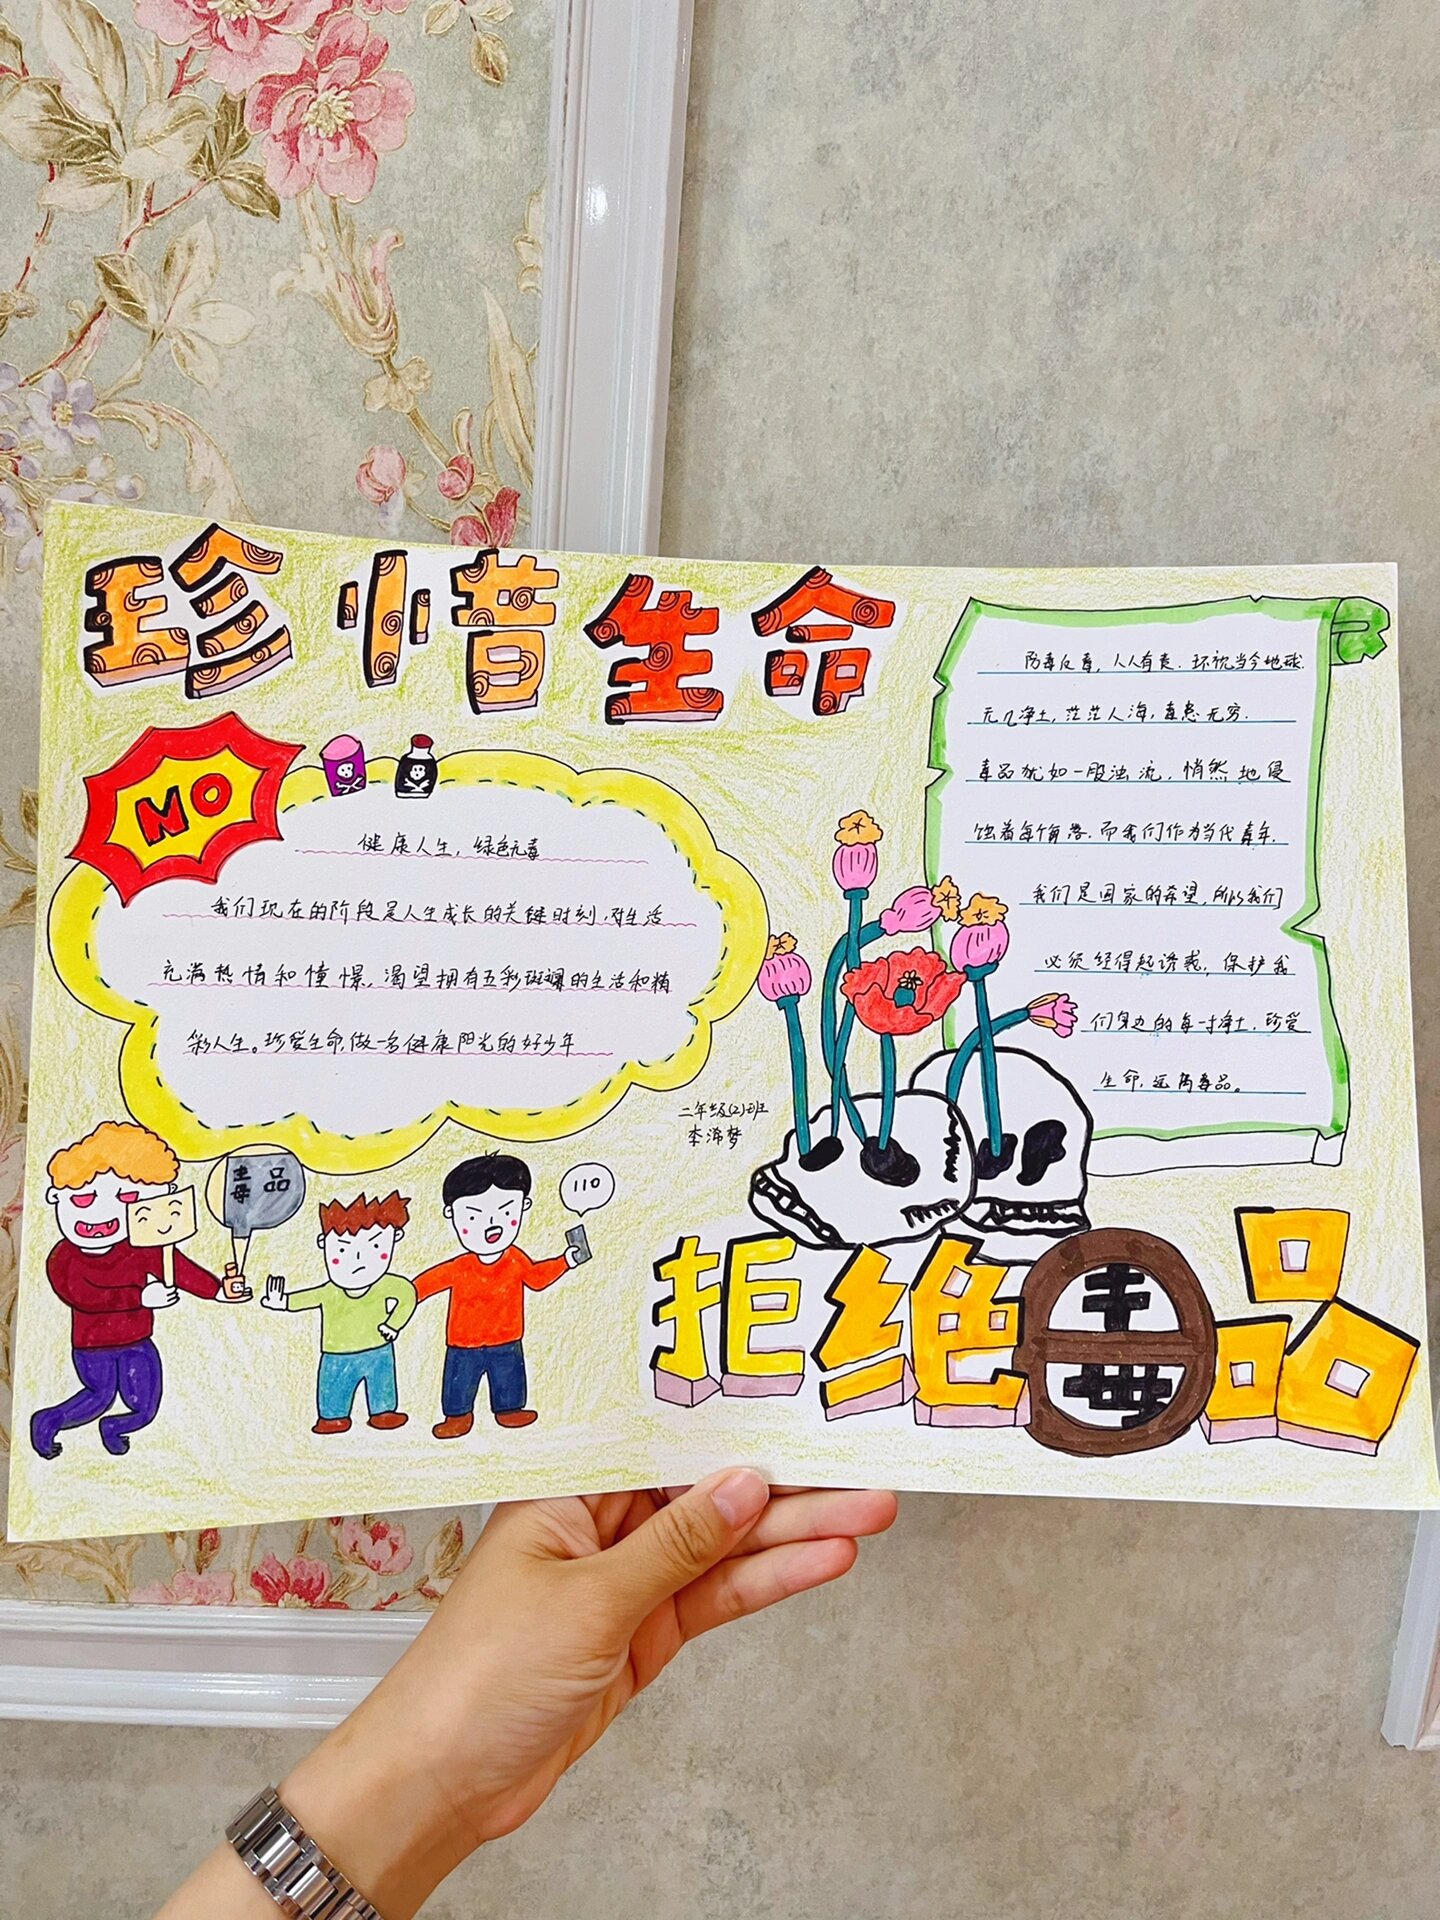 珍惜生命
NO
健康人生，绿色无毒
我们现在的阶段是人生成长的关键时刻，对生活
充满热情和憧憬，渴望拥有五彩斑斓的生活和精
彩人生。珍爱生命，做一名健康阳光的好少年
防毒反毒，人人有责．环视当今地球．
无几净土，茫茫人海，毒患无穷．
毒品犹如一股浊流，悄然地侵
蚀着每个角落．而我们作为当代青年．
我们是国家的希望，所以我们
必须经得起诱惑，保护我
们身边的每一寸净土．珍爱
生命，远离毒品。
二年级(2)班
李浠梦
毒品
110
拒绝毒品